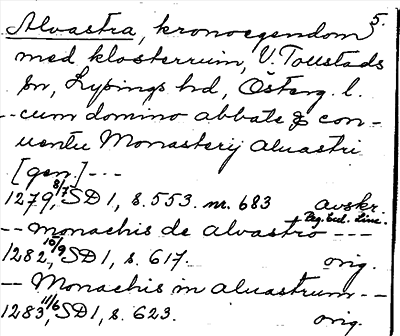 5.
Alvastra, kronoegendom
med klosterruin, V. Tollstads
sn, Lysings hd, Österg. l.
-- cum domino abbate & con-
uentu Monasterij aluastri
[gen.] ---
1279 8/7, SD 1, s. 553. nr. 683 avskr.
+ Reg. Eccl. Linc.
-- monachis de alvastro ---
1282 10/9, SD 1, s. 617. orig.
-- Monachis in aluastrum --
1283 11/6, SD 1, s. 623. orig.